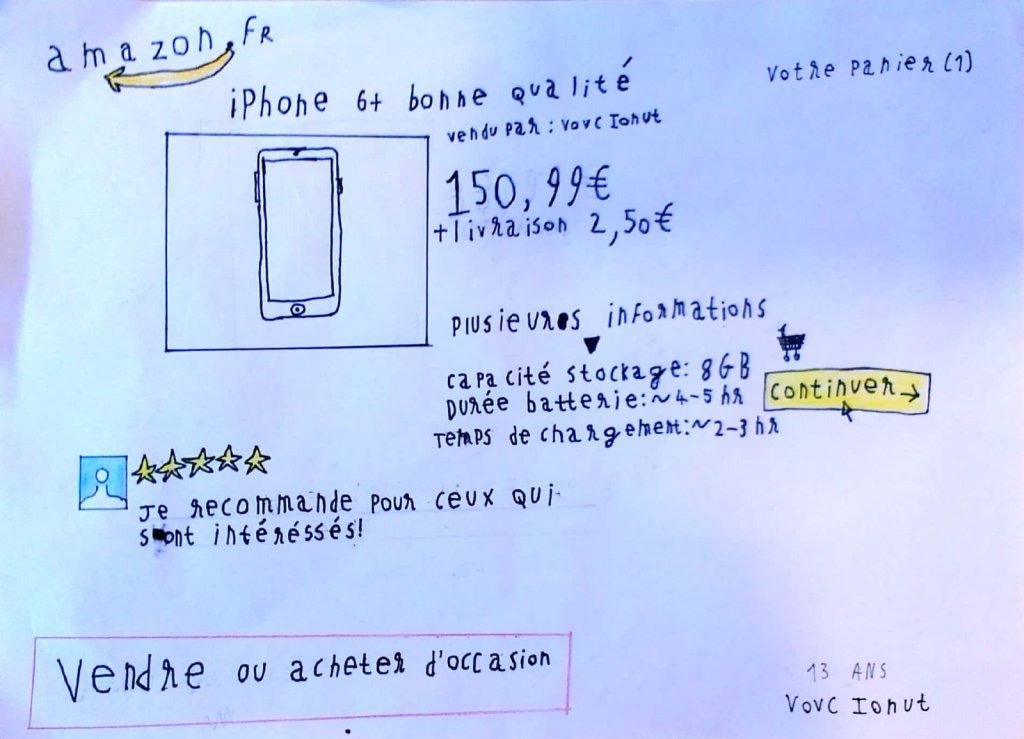 amazon.FR
Votre panier (1)
iPhone 6+ bonne qualité
vendu par : vovc Ionut
150,99€
+livraison 2,50€
plusieures informations
capacité stockage: 8GB
Durée batterie:~4-5 hr
continuer→
Temps de chargement:~2-3 hr
Je recommande pour ceux qui
sont intéréssés!
Vendre ou acheter d'occasion
13 ANS
Vovc Ionut